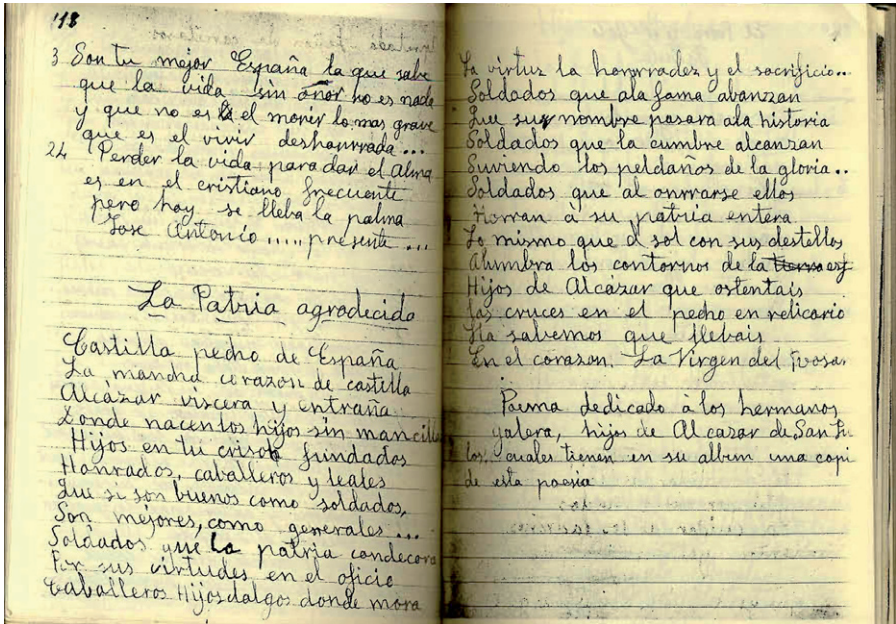 118
3 Son tu mejor España la que sabe
que la vida sin onor no es nada
y que no es el morir lo mas grave
que es el vivir deshonrrada...
24 Perder la vida para dar el alma
es en el cristiano frecuente
pero hoy se lleba la palma
Jose Antonio ..... presente ...
La Patria agradecida
Castilla pecho de España
La mancha corazon de castilla
Alcázar viscera y entraña
Donde nacen los hijos sin mancilla
Hijos en tu crisol fundados
Honrados, caballeros y leales
Que si son buenos como soldados,
Son mejores, como generales ...
Soldados que la patria condecora
Por sus virtudes en el oficio
Caballeros Hijosdalgos donde mora
La virtuz la honrradez y el sacrificio...
Soldados que ala fama abanzan
Que su nombre pasara ala historia
Soldados que la cumbre alcanzan
Suviendo los peldaños de la gloria..
Soldados que al onrrarse ellos
Honran à su patria entera
Lo mismo que el sol con sus destellos
Alumbra los contornos de la
Hijos de Alcázar que ostentais
las cruces en el pecho en relicario
Ya sabemos que llebais
En el corazon. La Virgen del
Poema dedicado à los hermanos
galera, hijos de Alcazar de San Ju
los cuales tienen en su album una copi
de esta poesia